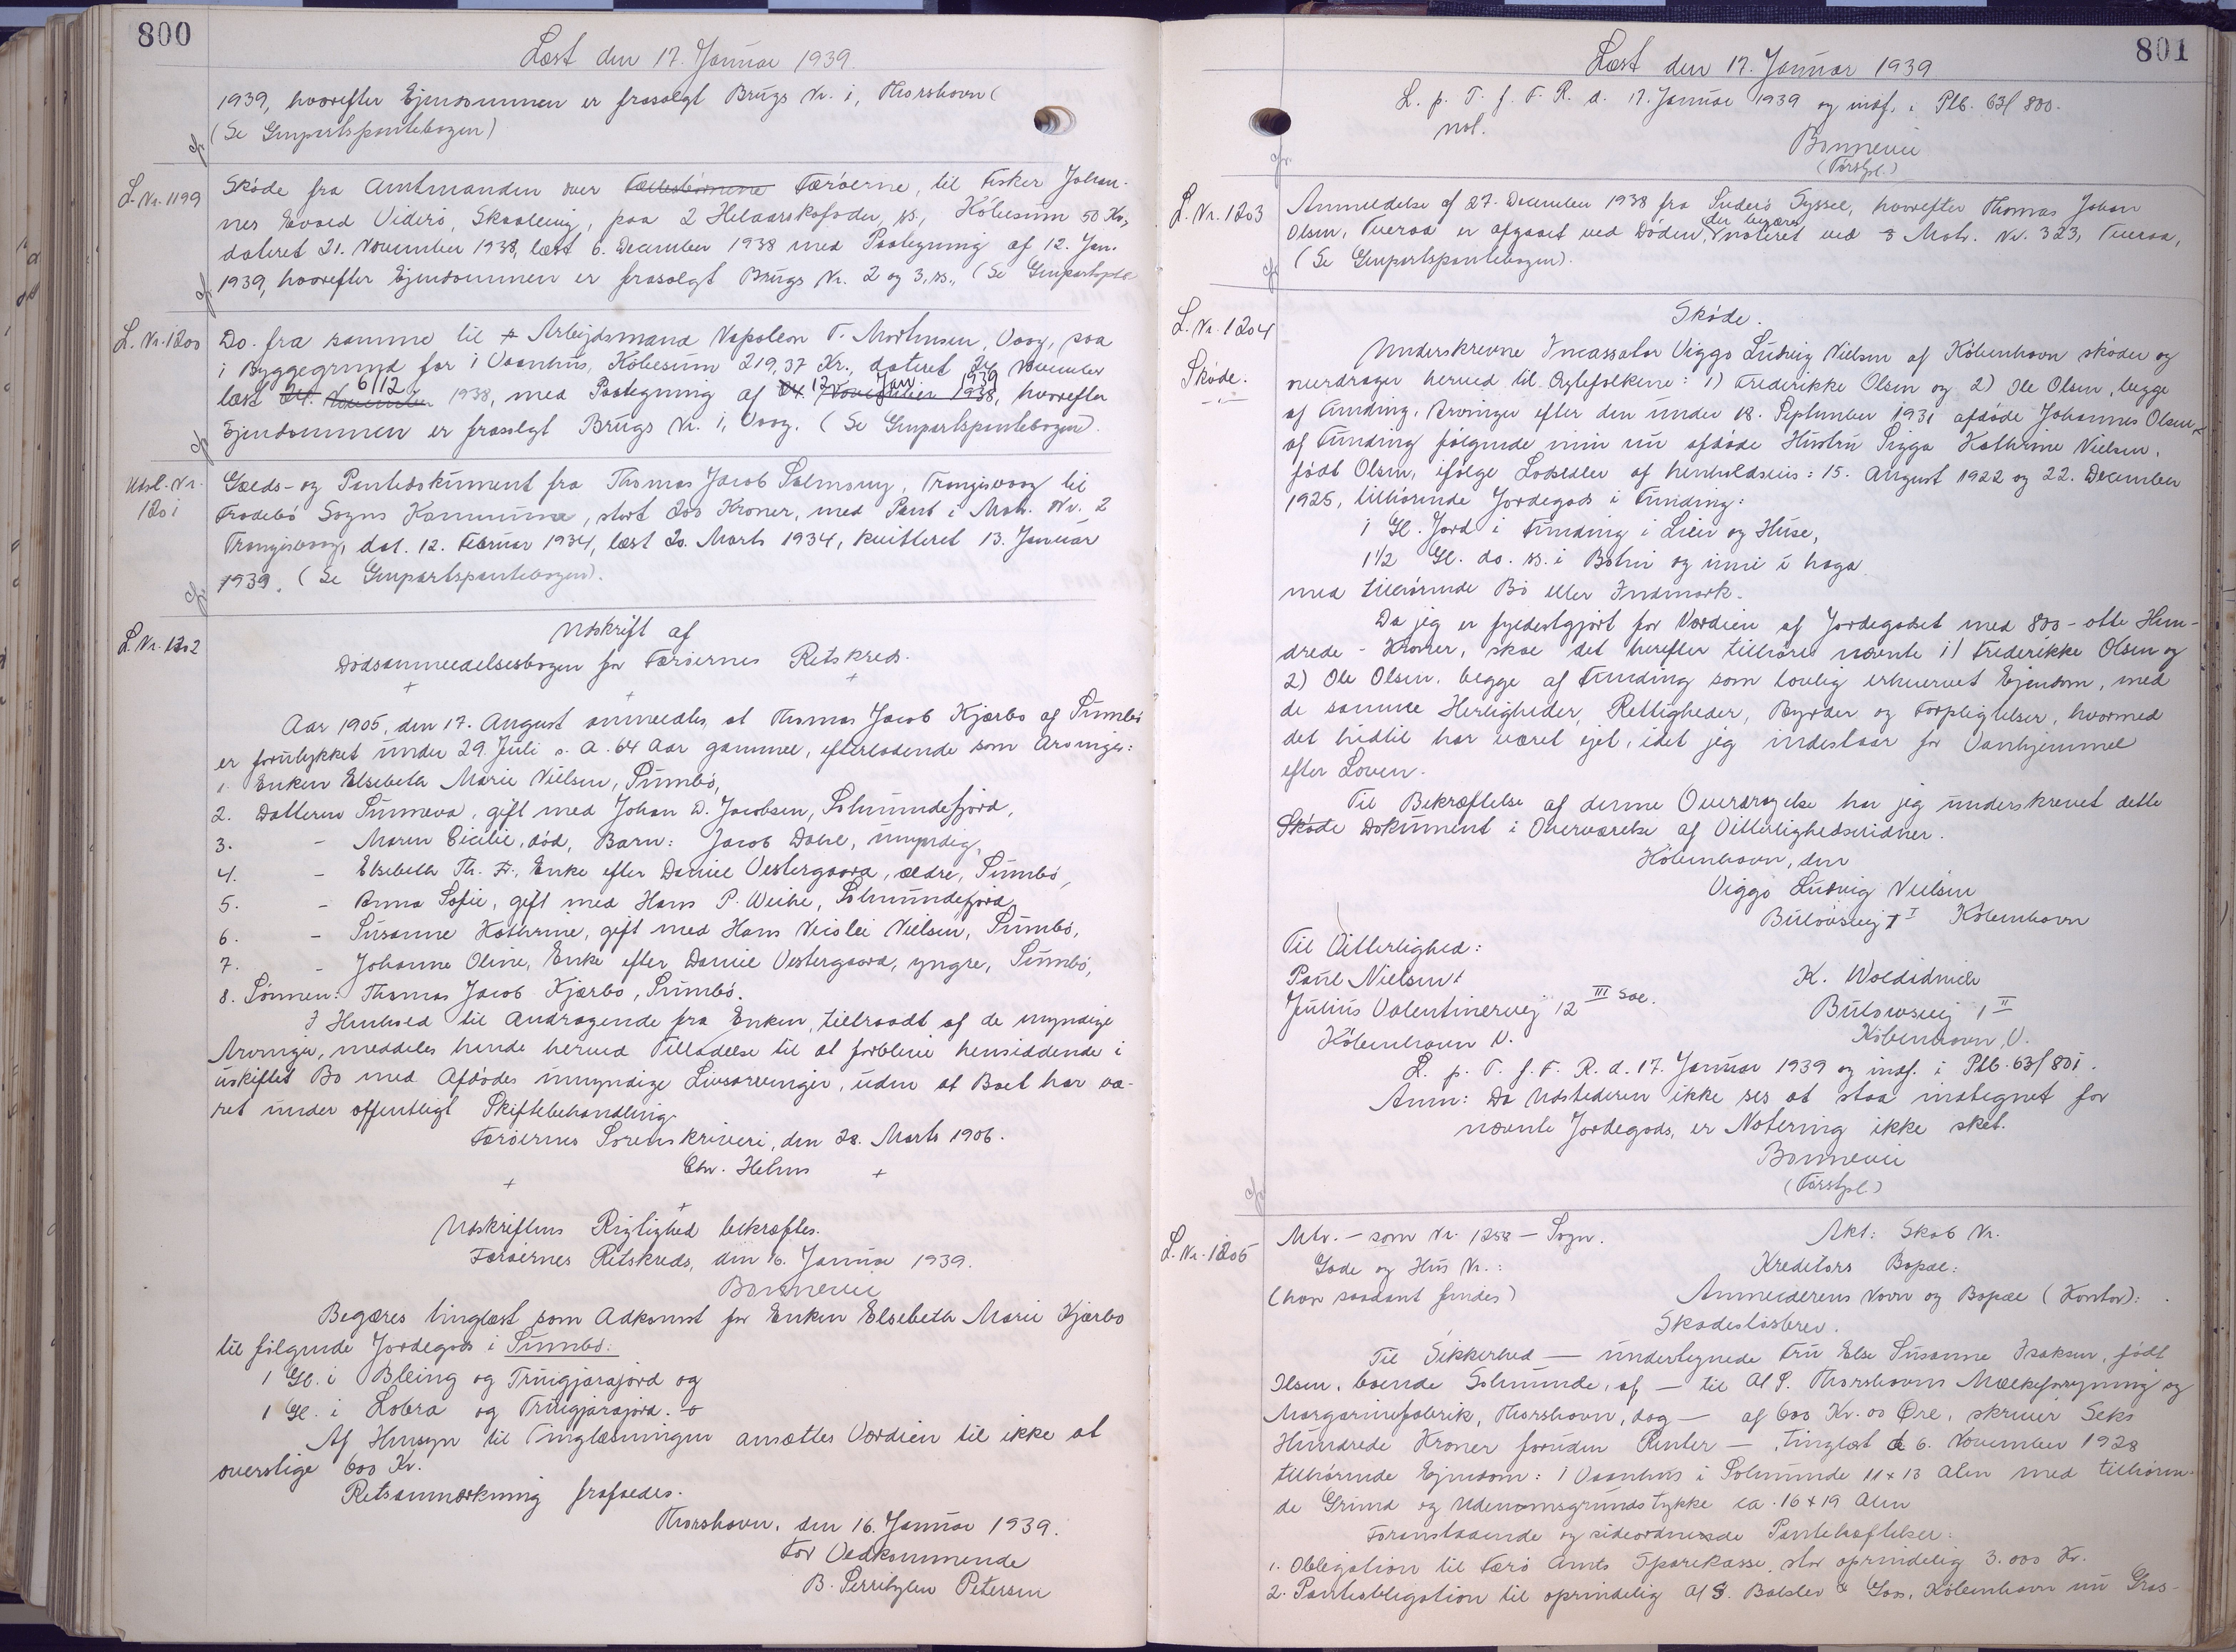 800
Læst den 17. Januar 1939.
1939, hvorefter Ejendommen er frasolgt Brugs Nr. 1, Thorshavn (
(Se Genpartspantebogen)
L. Nr. 1199
Skøde fra Amtmanden over Færøerne, til Fisker Johan-
nes Evald Viderø, Skaalevig, paa 2 Helaarsksfoder, ss., Købesum 50 Kr,
dateret 21. November 1938, læst 6. December 1938 med Paategning af 12. Jan.
1939, hvorefter Ejendommen er frasolgt Brugs Nr. 2 og 3, ss., (Se Genpartsptb
L. Nr. 1200
Do. fra samme til Arbejdsmand Napoleon T. Mortensen, Vaag, paa
1 Byggegrund for 1 Vaanhus, Købesum 219,37 Kr., dateret 24 November
læst 24. November 6/12 1938, med Paategning af 24. November 1938, 12 Jan 1939 hvorefter
Ejendommen er frasolgt Brugs Nr. 1, Vaag. (Se Genpartspantebogen).
Udsl. Nr.
1201
Gælds- og Pantedokument fra Thomas Jacob Salmony, Trangisvaag til
Frodebø Sogns Kommune, stort 200 Kroner, med Pant i Matr. Nr. 2
Trangisvaag, dat. 12. Februar 1934, læst 20. Marts 1934, kvitteret 13. Januar
1939. (Se Genpartspantebogen).
L. Nr. 1202
Udskrift af
Dødsanmeldelsesbogen for Færøernes Retskreds.
Aar 1905, den 17. August anmeldtes, at Thomas Jacob Kjærbo af Sumbø
er forulykket under 29. Juli s. A. 64 Aar gammel, efterladende som Arvinger:
1. Enken Elsebeth Marie Nielsen, Sumbø,
2. Datteren Sunneva, gift med Johan D. Jacobsen, Solmundefjord,
3. - Maren Cicilie, død, Barn: Jacob Dahl, umyndig,
4. - Elsebeth Th. Fr., Enke efter Daniel Vestergaard, ældre, Sumbø,
5. - Anna Sofie, gift med Hans P. Weihe, Solmundefjord,
6. - Susanne Kathrine, gift med Hans Nicolai Nielsen, Sumbø,
7. - Johanne Oline, Enke efter Daniel Vestergaard, yngre, Sumbø,
8. Sønnen: Thomas Jacob Kjærbo, Sumbø.
I Henhold til Andragende fra Enken, tiltraadt af de myndige
Arvinger, meddeles hende herved Tilladelse til at forblive hensiddende i
uskiftet Bo med Afdødes umyndige Livsarvinger, uden at Boet har væ-
ret under offentligt Skiftebehandling.
Færøernes Sorenskriveri, den 28. Marts 1906.
Chr. Helms
Udskriftens Rigtighed bekræftes.
Færøernes Retskreds, den 16. Januar 1939.
Bonnevie
Begæres tinglæst som Adkomst for Enken Elsebeth Marie Kjærbo
til følgende Jordegods i Sumbø:
1 Gl. i Bleing og Truigjarajord og
1 Gl. i Lobra og Truigjarajord.
Af Hensyn til Tinglæsningen ansættes Værdien til ikke at
overstige 600 Kr.
Retsanmærkning frafaldes.
Thorshavn, den 16. Januar 1939.
For Vedkommende
B. Petersen
801
Læst den 17. Januar 1939
L. p. T. f. F. R. d. 17. Januar 1939 og indf. i Ptb. 63/800.
not.
Bonnevie
(Forstpl.)
L. Nr. 1203
Anmeldelse af 27. December 1938 fra Suderø Syssel, hvorefter Thomas Johan
Olsen, Tveraa er afgaaet ved Døden, der begæres noteret ved Matr. Nr. 323, Tveraa,
(Se Genpartspantebogen).
L. Nr. 1204
Skøde.
Skøde.
Underskrevne Incassator Viggo Ludvig Nielsen af København skøder og
overdrager herved til Ægtefolkene: 1) Frederikke Olsen og 2) Ole Olsen, begge
af Funding, Arvinger efter den under 18. September 1931 afdøde Johannes Olsen
af Funding følgende min nu afdøde Hustru Sigga Kathrine Nielsen,
født Olsen, ifølge Lodsedler af henholdsvis: 15. August 1922 og 22. December
1925, tilhørende Jordegods i Funding:
1 Gl. Jord i Funding i Lien og Huse,
1½ Gl. do. ss. i Botni og inni i haga
med tilhørende Bø eller Indmark.
Da jeg er fyldestgjort for Værdien af Jordegodset med 800 - otte Hun-
drede - Kroner, skal det herefter tilhøre nævnte 1) Frederikke Olsen og
2) Ole Olsen, begge af Funding som lovlig erhvervet Ejendom, med
de samme Herligheder, Rettigheder, Byrder og Forpligtelser, hvormed
det hidtil har været ejet, idet jeg indestaar for Vanhjemmel
efter Loven.
Til Bekræftelse af denne Overdragelse har jeg underskrevet dette
Skøde Dokument i Overværelse af Vitterlighedsvidner.
København, den
Viggo Ludvig Nielsen
Bülowsvej 1 I København
Til Vitterlighed:
Paul Nielsen
Julius Valentinersvej 12 III Sal.
København V.
K. Woldidnich
Bülowsvej 1 II
København, V.
L. p. T. f. F. R. d. 17. Januar 1939 og indf. i Ptb. 63/801.
Anm: Da Udstederen ikke ses at staa indtegnet for
nævnte Jordegods, er Notering ikke sket.
Bonnevie
(Forstpl.)
L. Nr. 1205
Mtr. - som Nr. 1258 - Sogn.
Akt: Skab Nr.
Gade og Hus Nr.:
Kreditors Bopæl:
(hvor saadant findes)
Anmelderens Navn og Bopæl (Kontor):
Skadesløsbrev.
Til Sikkerhed - undertegnede Fru Else Susanne Isaksen, født
Olsen, boende Solmunde, af - til A/S. Thorshavns Mælkeforsyning og
Margarinefabrik, Thorshavn, dog - af 600 Kr. 00 Øre, skriver Seks
Hundrede Kroner foruden Renter - Tinglæst d 6. November 1928
tilhørende Ejendom: 1 Vaanhus i Solmunde 11 x 13 Alen med tilhøren-
de Grund og Udenomsgrundstykke ca. 16 x 19 Alen
Foranstaaende og sideordnede Pantehæftelser:
1. Obligation til Færø Amts Sparekasse, stor oprindelig 3.000 Kr.
2. Panteobligation til oprindelig A/S. Balslev & Goos, København nu Gras-